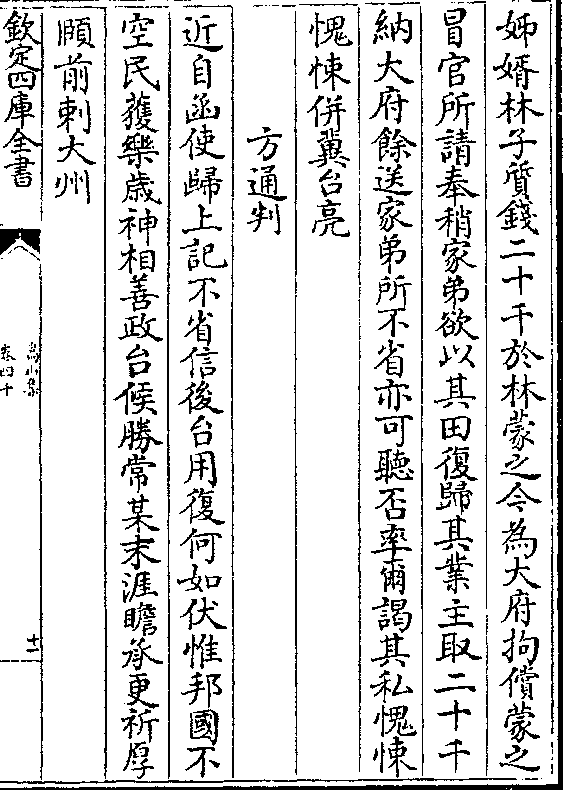 姊婿林子質錢二十千於林蒙之令為大府拘償蒙之
冒官所請奉稍家弟欲以其田復歸其業主取二十千
納大府餘送家弟所不省亦可聽否率爾謁其私愧悚
愧悚併冀台亮
方通判
近自函使歸上記不省信後台用復何如伏惟邦國不
空民獲樂歳神相善政台候勝常某末涯瞻承更祈厚
頤前刺大州
欽定四庫全書
卷四十
十一